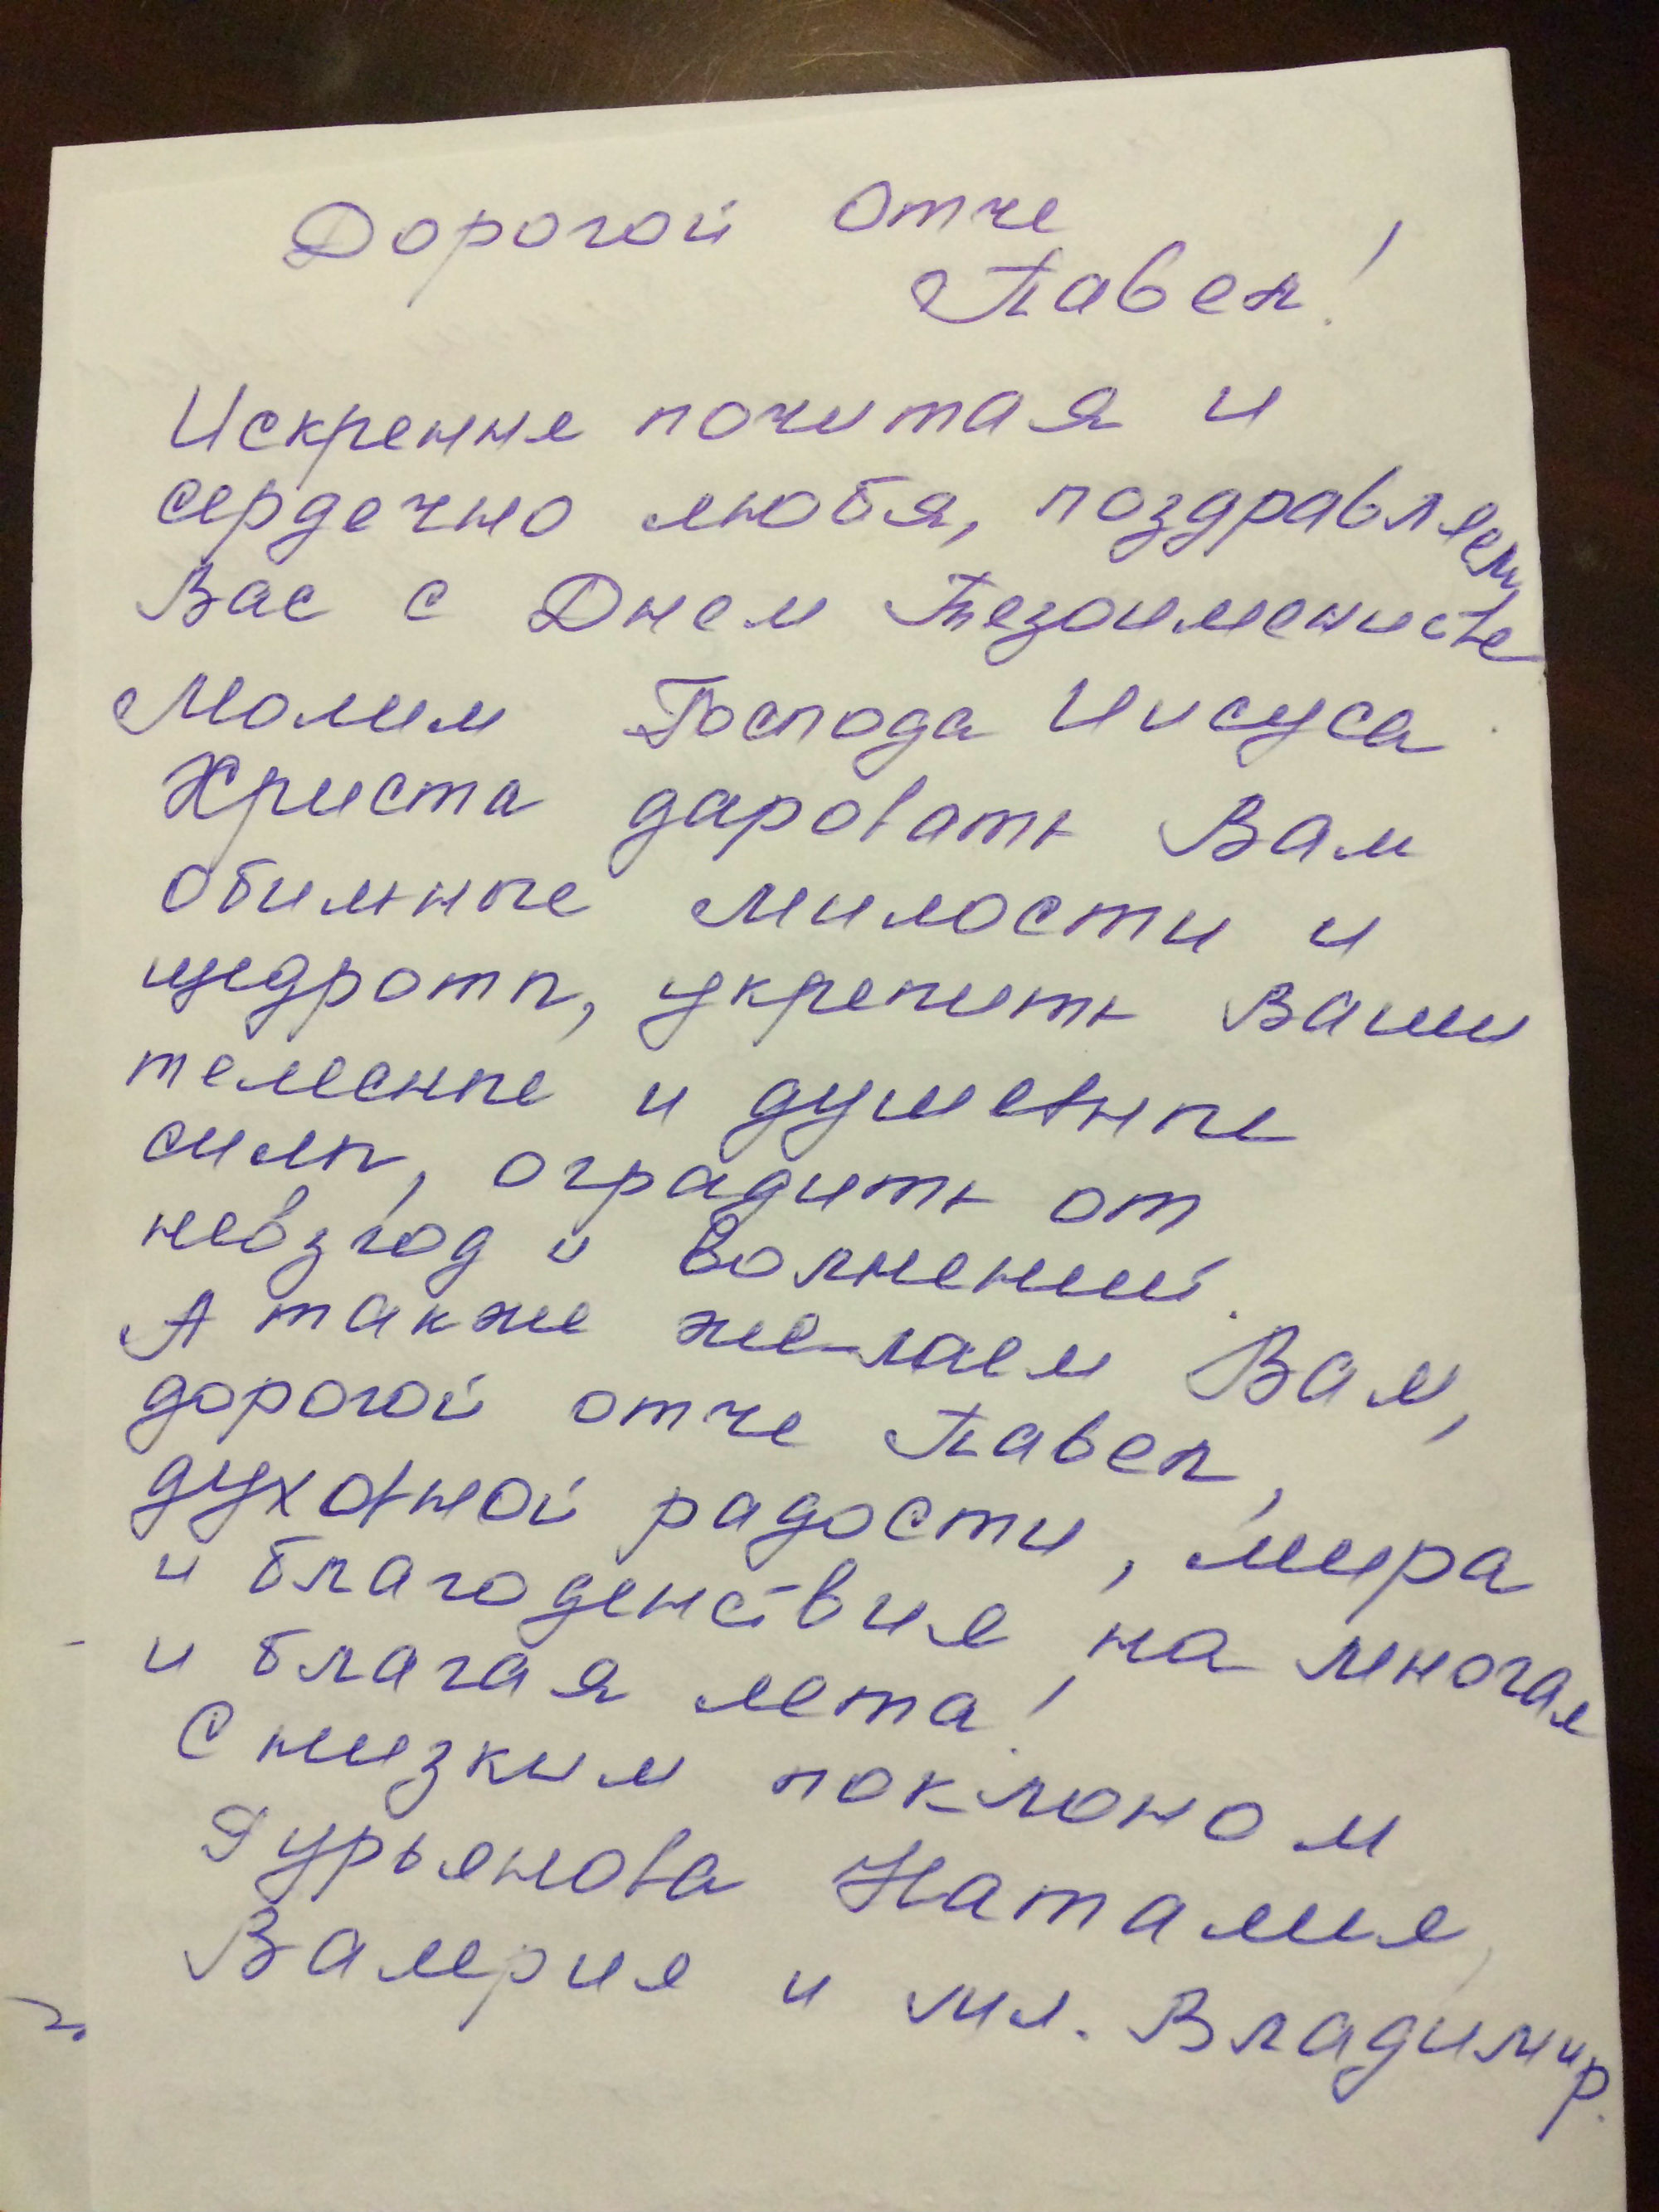 Дорогой Отче
Павел!
Искренне почитая и
сердечно любя, поздравляем
Вас с Днем Тезоименитства
Молим Господа Иисуса
Христа даровать Вам
обильные милости и
щедроты, укрепить Ваши
телесные и душевные
силы, оградить от
невзгод и волнений.
А также желаем Вам,
дорогой отче Павел,
духовной радости, мира
и благоденствия на многая
и благая лета!
С низким поклоном
Гурьянова Наталия,
Валерия и мл. Владимир.